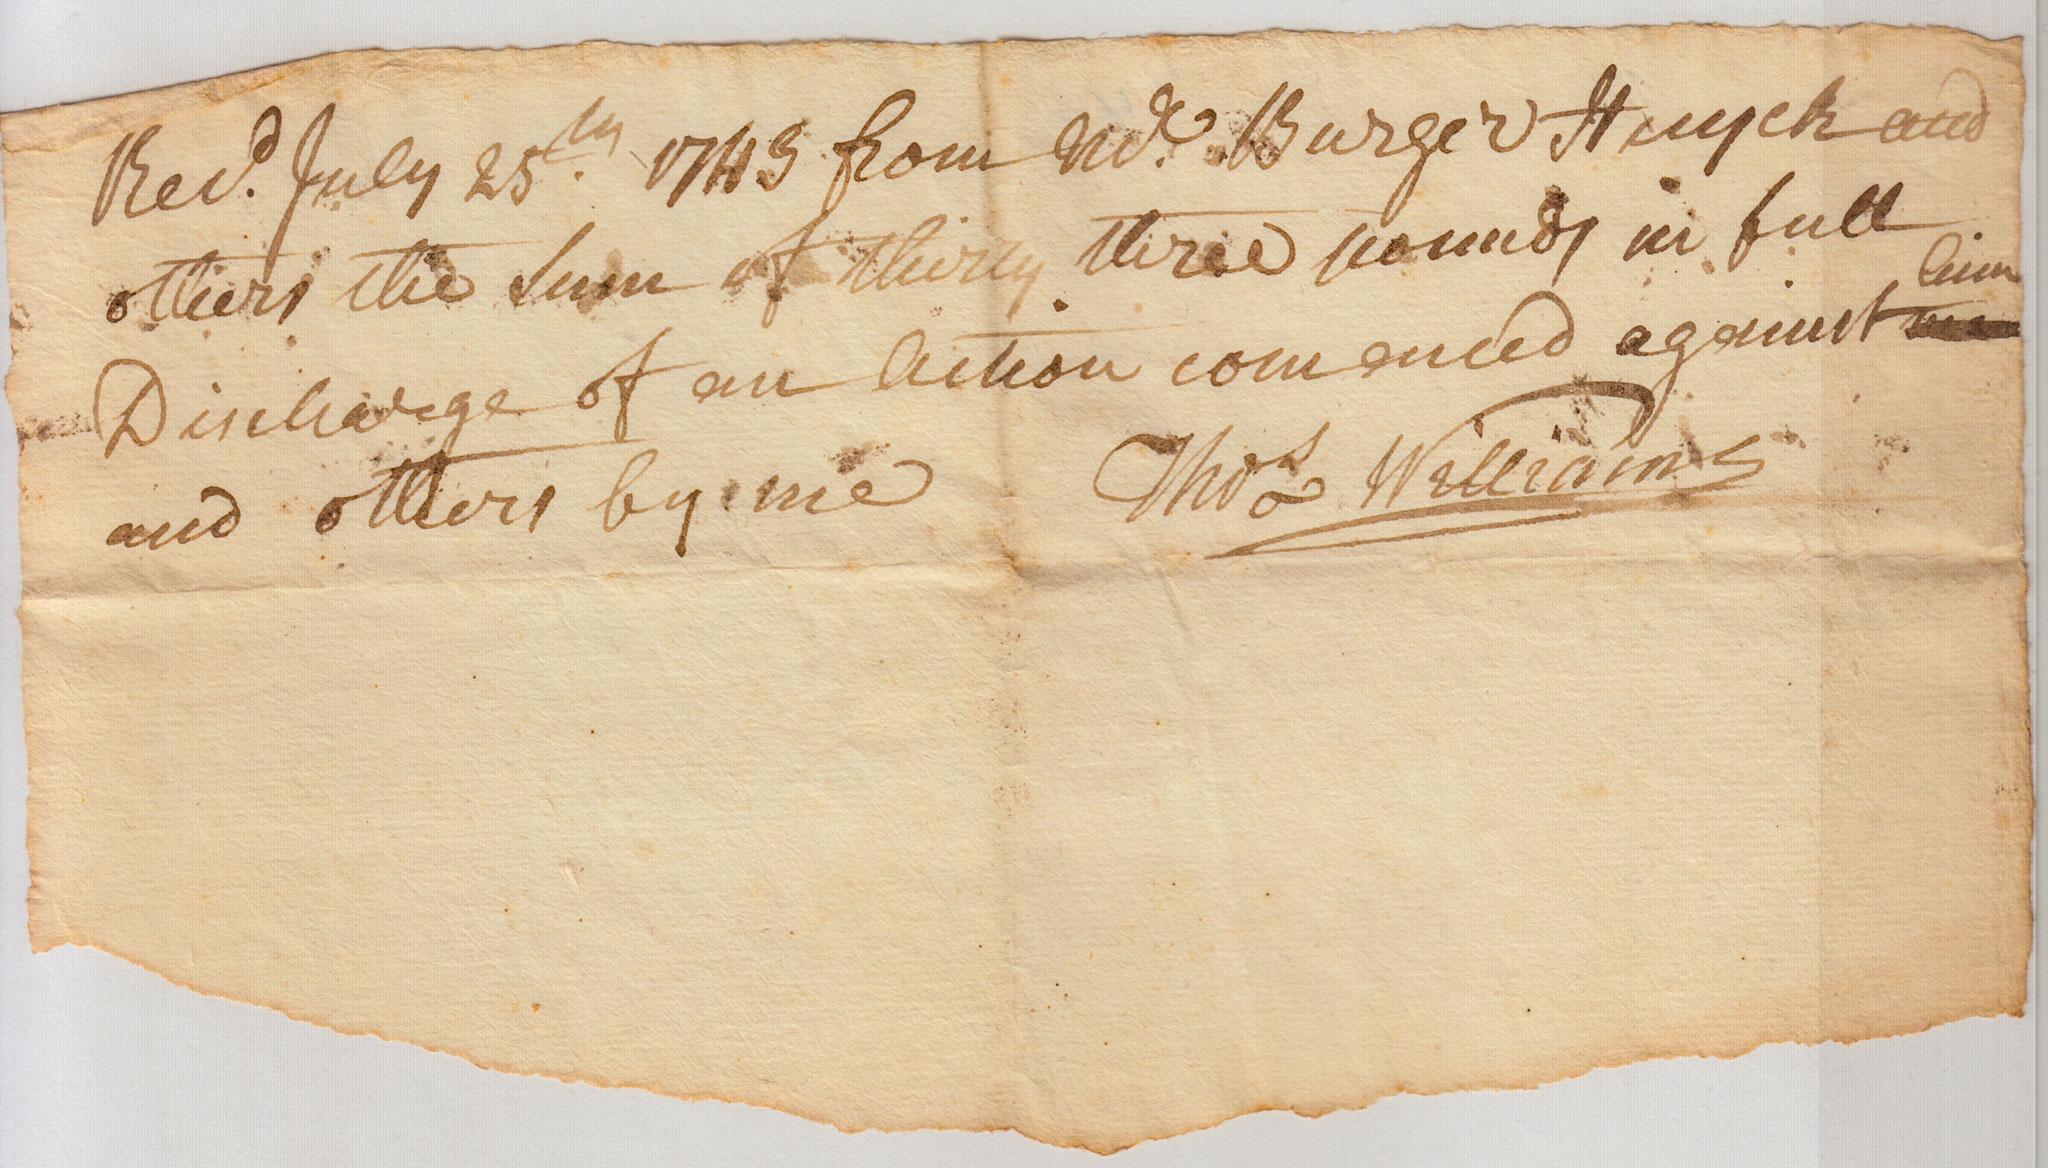 Recd. July 25th. 1743 from Mr. Burger Huyck and
others the Sum of thirty three pounds in full
Discharge of an Action comenced against him
and others by me Thos Williams